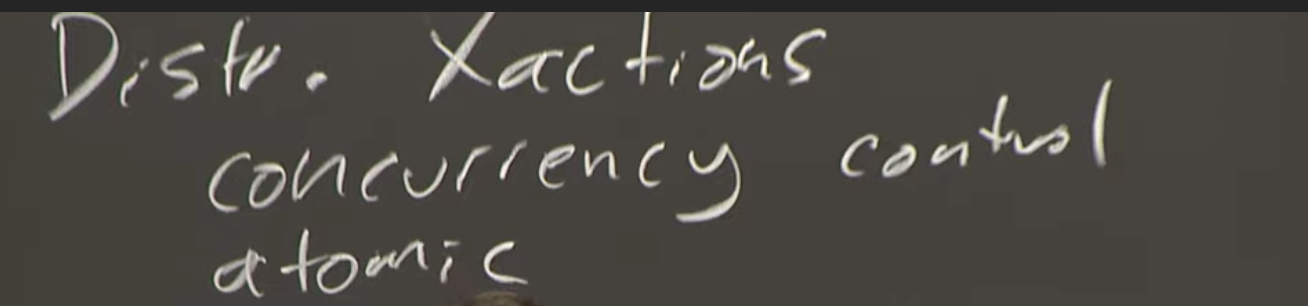 Distr. Xactions
concurrency control
atomic